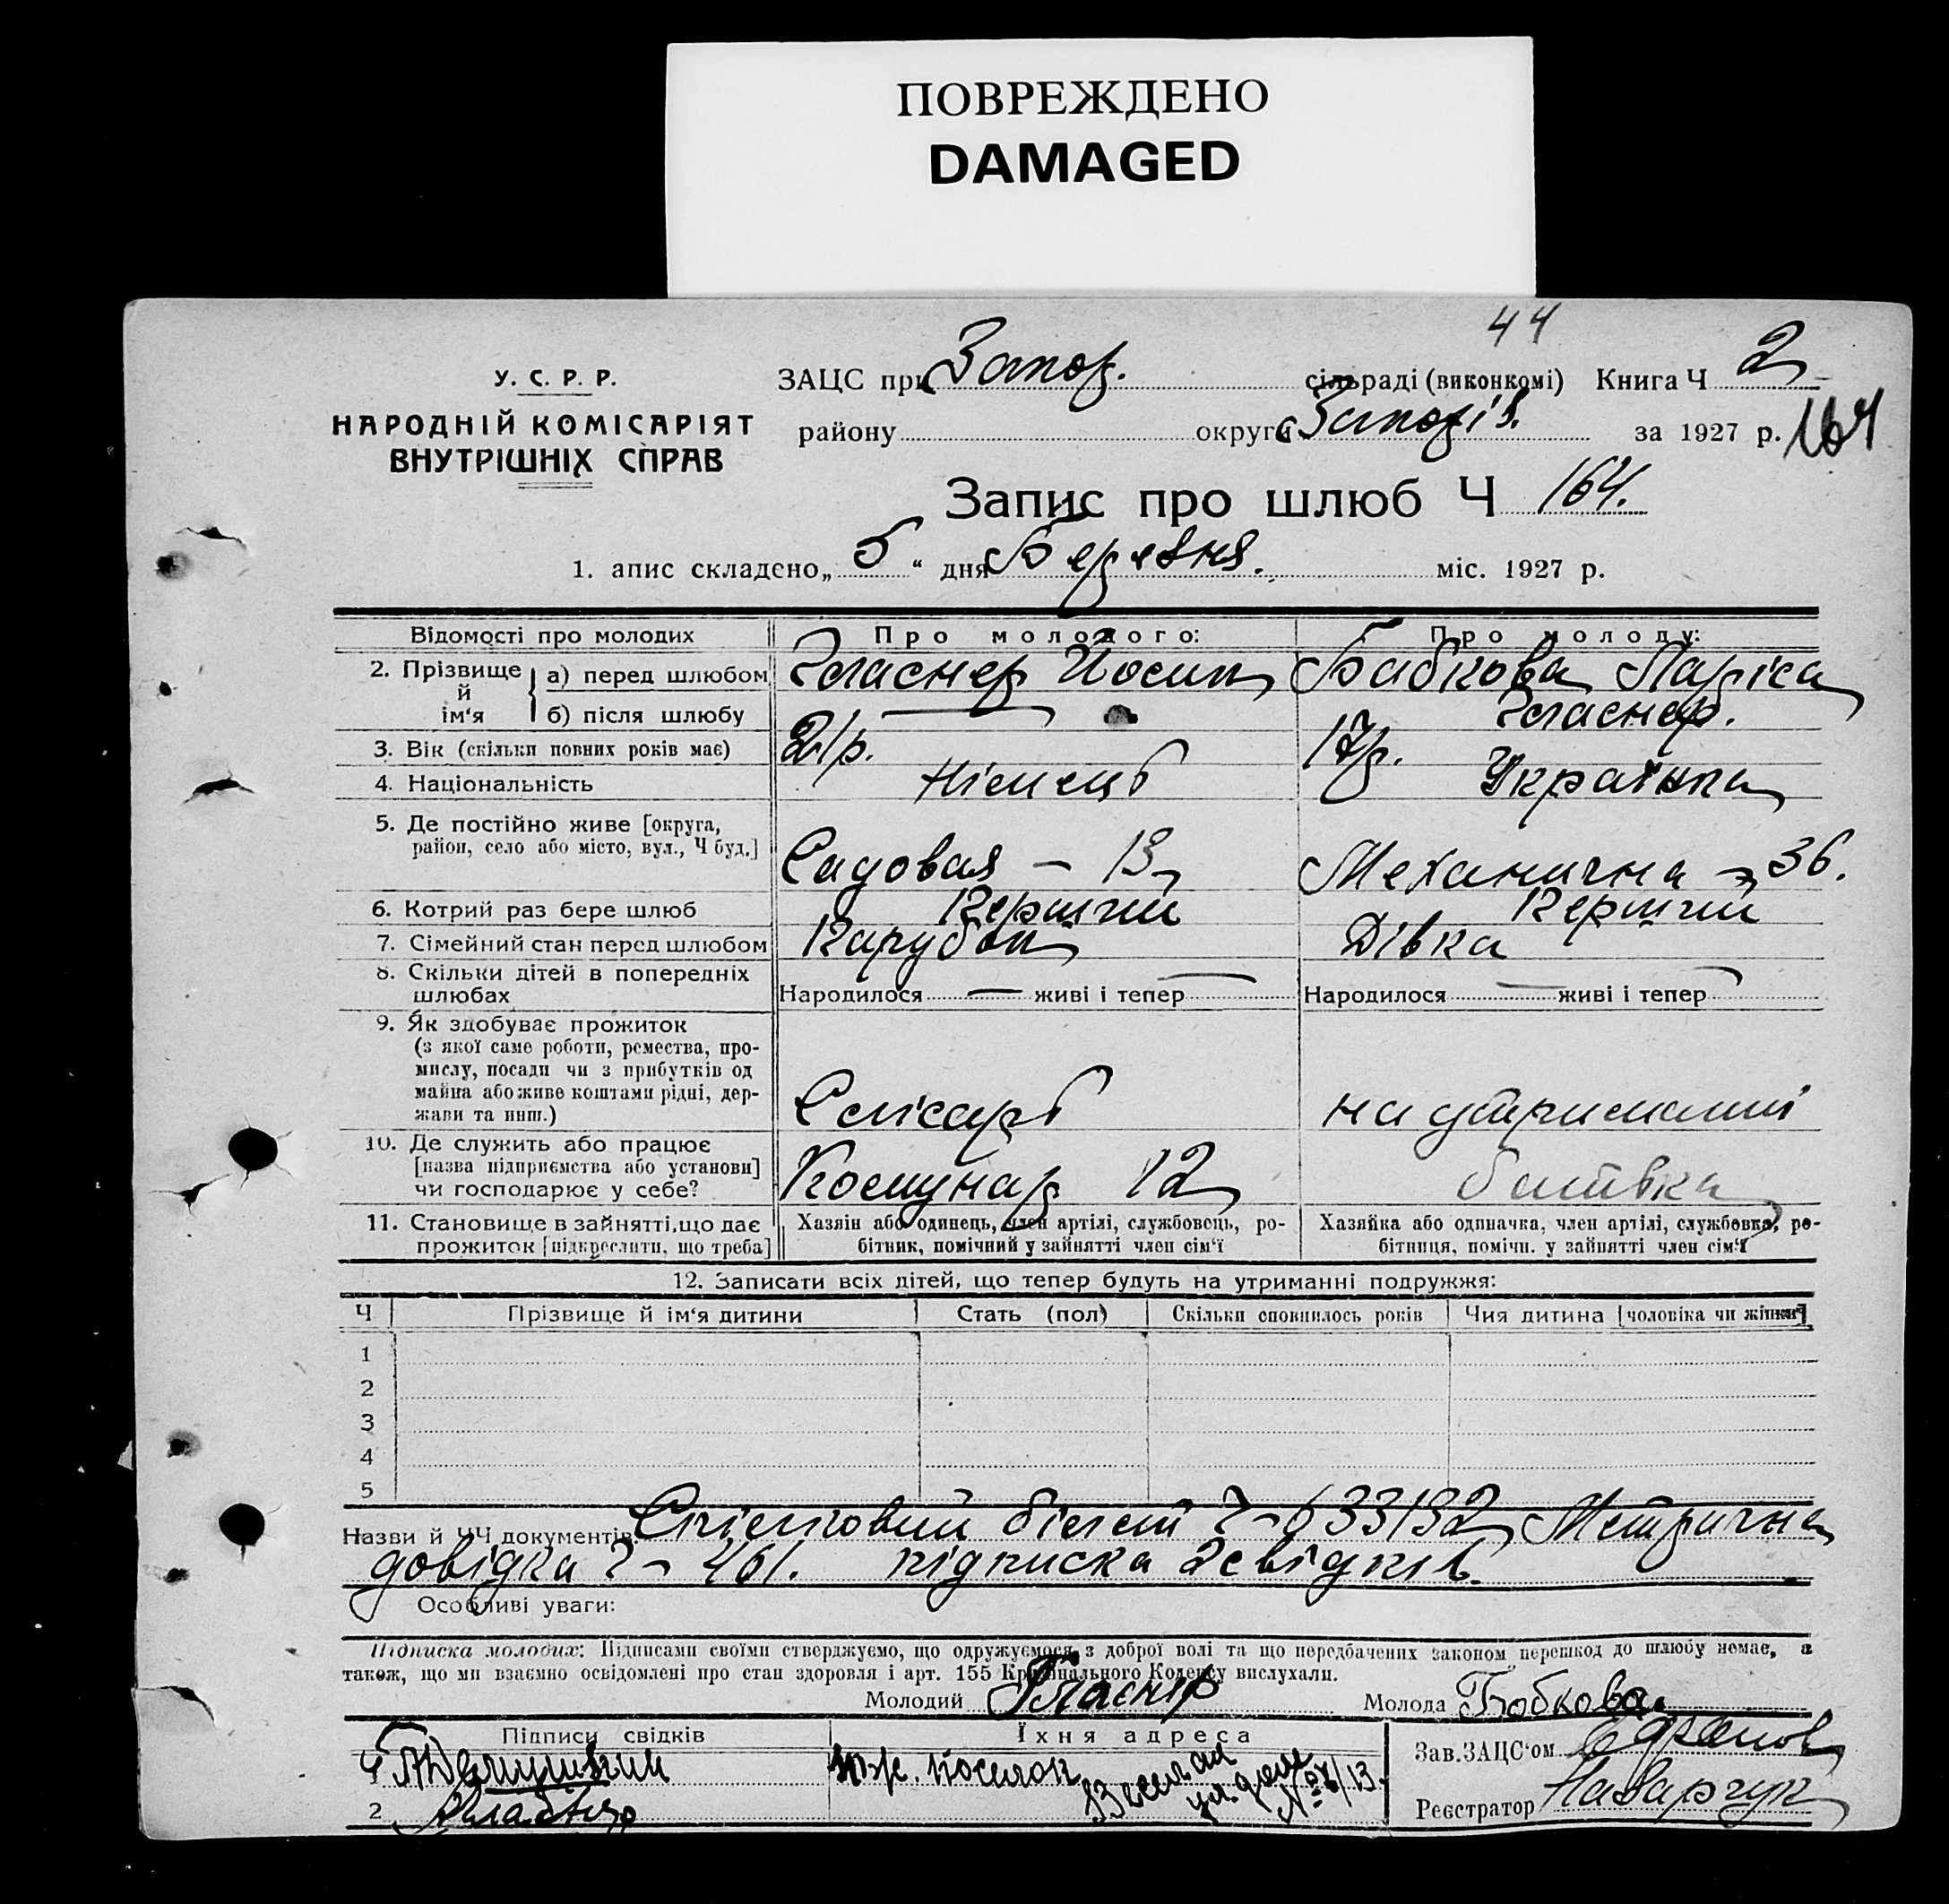 ПОВРЕЖДЕНО
DAMAGED
44
У. С. Р. Р.
НАРОДНІЙ КОМІСАРІЯТ
ВНУТРІШНІХ СПРАВ
ЗАЦС при Запор. сільраді (виконкомі) Книга Ч 2
району округи Запоріз. за 1927 р. 164
Запис про шлюб Ч 164.
1. апис складено „ 5 “ дня Березня. міс. 1927 р.
Відомості про молодих Про молодого: Про молоду:
2. Прізвище й ім‘я а) перед шлюбом Гласнер Йосип Бабкова Лариса
б) після шлюбу Гласнер.
3. Вік (скільки повних років має) 21р. 17р.
4. Національність Німець Українка
5. Де постійно живе [округа,
район, село або місто, вул., Ч буд.] Садовая – 13 Механична – 36.
6. Котрий раз бере шлюб Перший Перший
7. Сімейний стан перед шлюбом Парубок Дівка
8. Скільки дітей в попередніх
шлюбах Народилося — живі і тепер — Народилося — живі і тепер —
9. Як здобуває прожиток
(з якої саме роботи, ремества, про-
мислу, посади чи з прибутків од
майна або живе коштами рідні, дер-
жави та инш.) Слісарь на утриманні
10. Де служить або працює
[назва підприємства або установи]
чи господарює у себе? Комунар 12 батівка
11. Становище в зайнятті, що дає
прожиток [підкреслити, що треба]
Хазяін або одинець, член артілі, службовець, ро-
бітник, помічний у зайнятті член сім‘ї
Хазяйка або одиначка, член артілі, службовка, ро-
бітниця, помічн. у зайнятті член сім‘ї
12. Записати всіх дітей, що тепер будуть на утриманні подружжя:
Ч Прізвище й ім‘я дитини Стать (пол) Скільки сповнилось років Чия дитина [чоловіка чи жінки]
1
2
3
4
5
Назви й ЧЧ документів: Спілковий білет 633132 Метрична
довідка 461. підписка 2 свідків.
Особливі уваги:
Підписка молодих: Підписами своїми стверджуємо, що одружуємося з доброї волі та що передбачених законом перешкод до шлюбу немає, а
також, що ми взаємно освідомлені про стан здоровля і арт. 155 Кримінального Кодексу вислухали.
Молодий Гласнер Молода Бобкова
Підписи свідків Їхня адреса
1 поселок
2
Зав. ЗАЦС‘ом
Реєстратор Назарчук